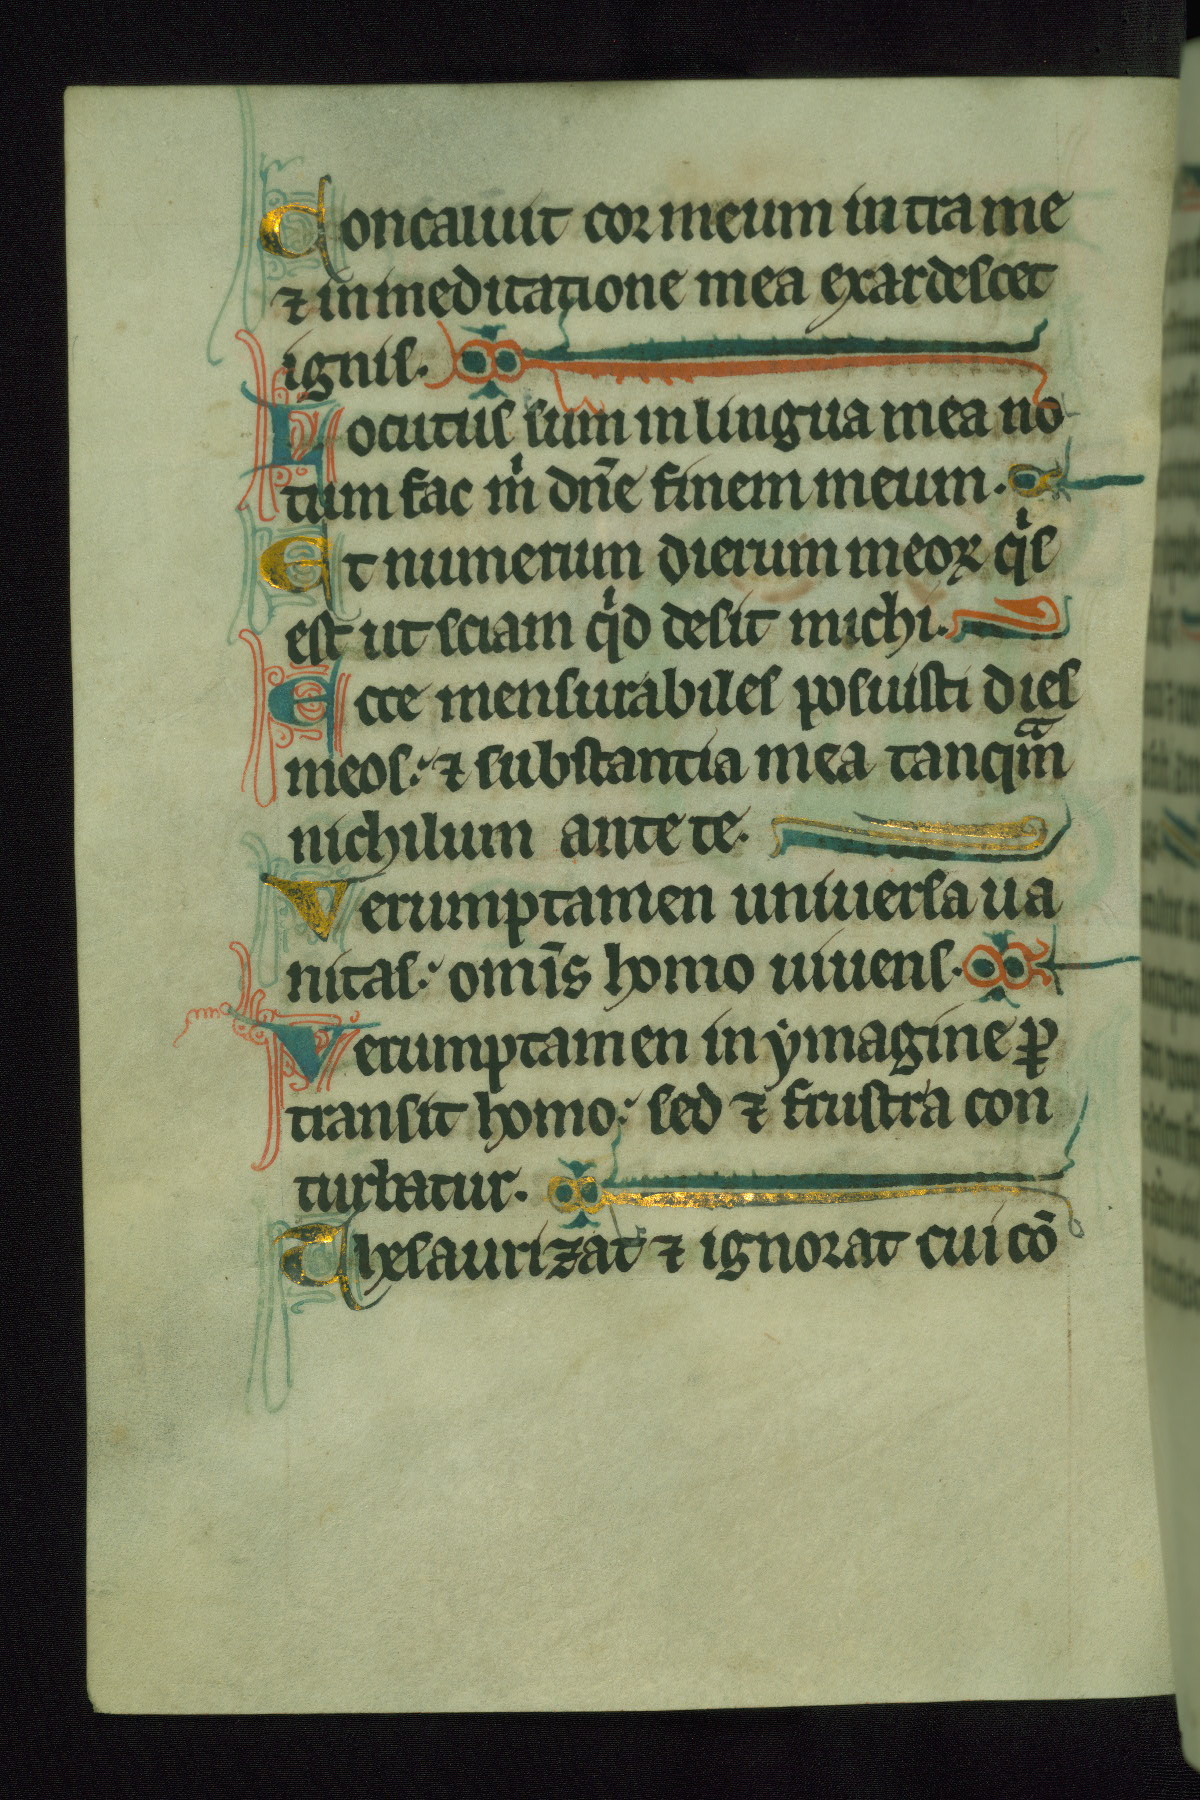 Concaluit cor meum intra me
⁊ in meditatione mea exardescet
ignis.
Locutus sum in lingua mea no
tum fac m̍ dn̄e finem meum.
Et numerum dierum meoꝝ q̍s
est ut sciam q̍d desit michi.
Ecce mensurabiles posuisti dies
meos: ⁊ substantia mea tanqᵃm
nichilum ante te.
Verumptamen uniuersa ua
nitas: omīs homo uiuens.
Verumptamen in ymagine ꝑ
transit homo: sed ⁊ frustra con
turbatur.
Thesaurizat ⁊ ignorat cui cō